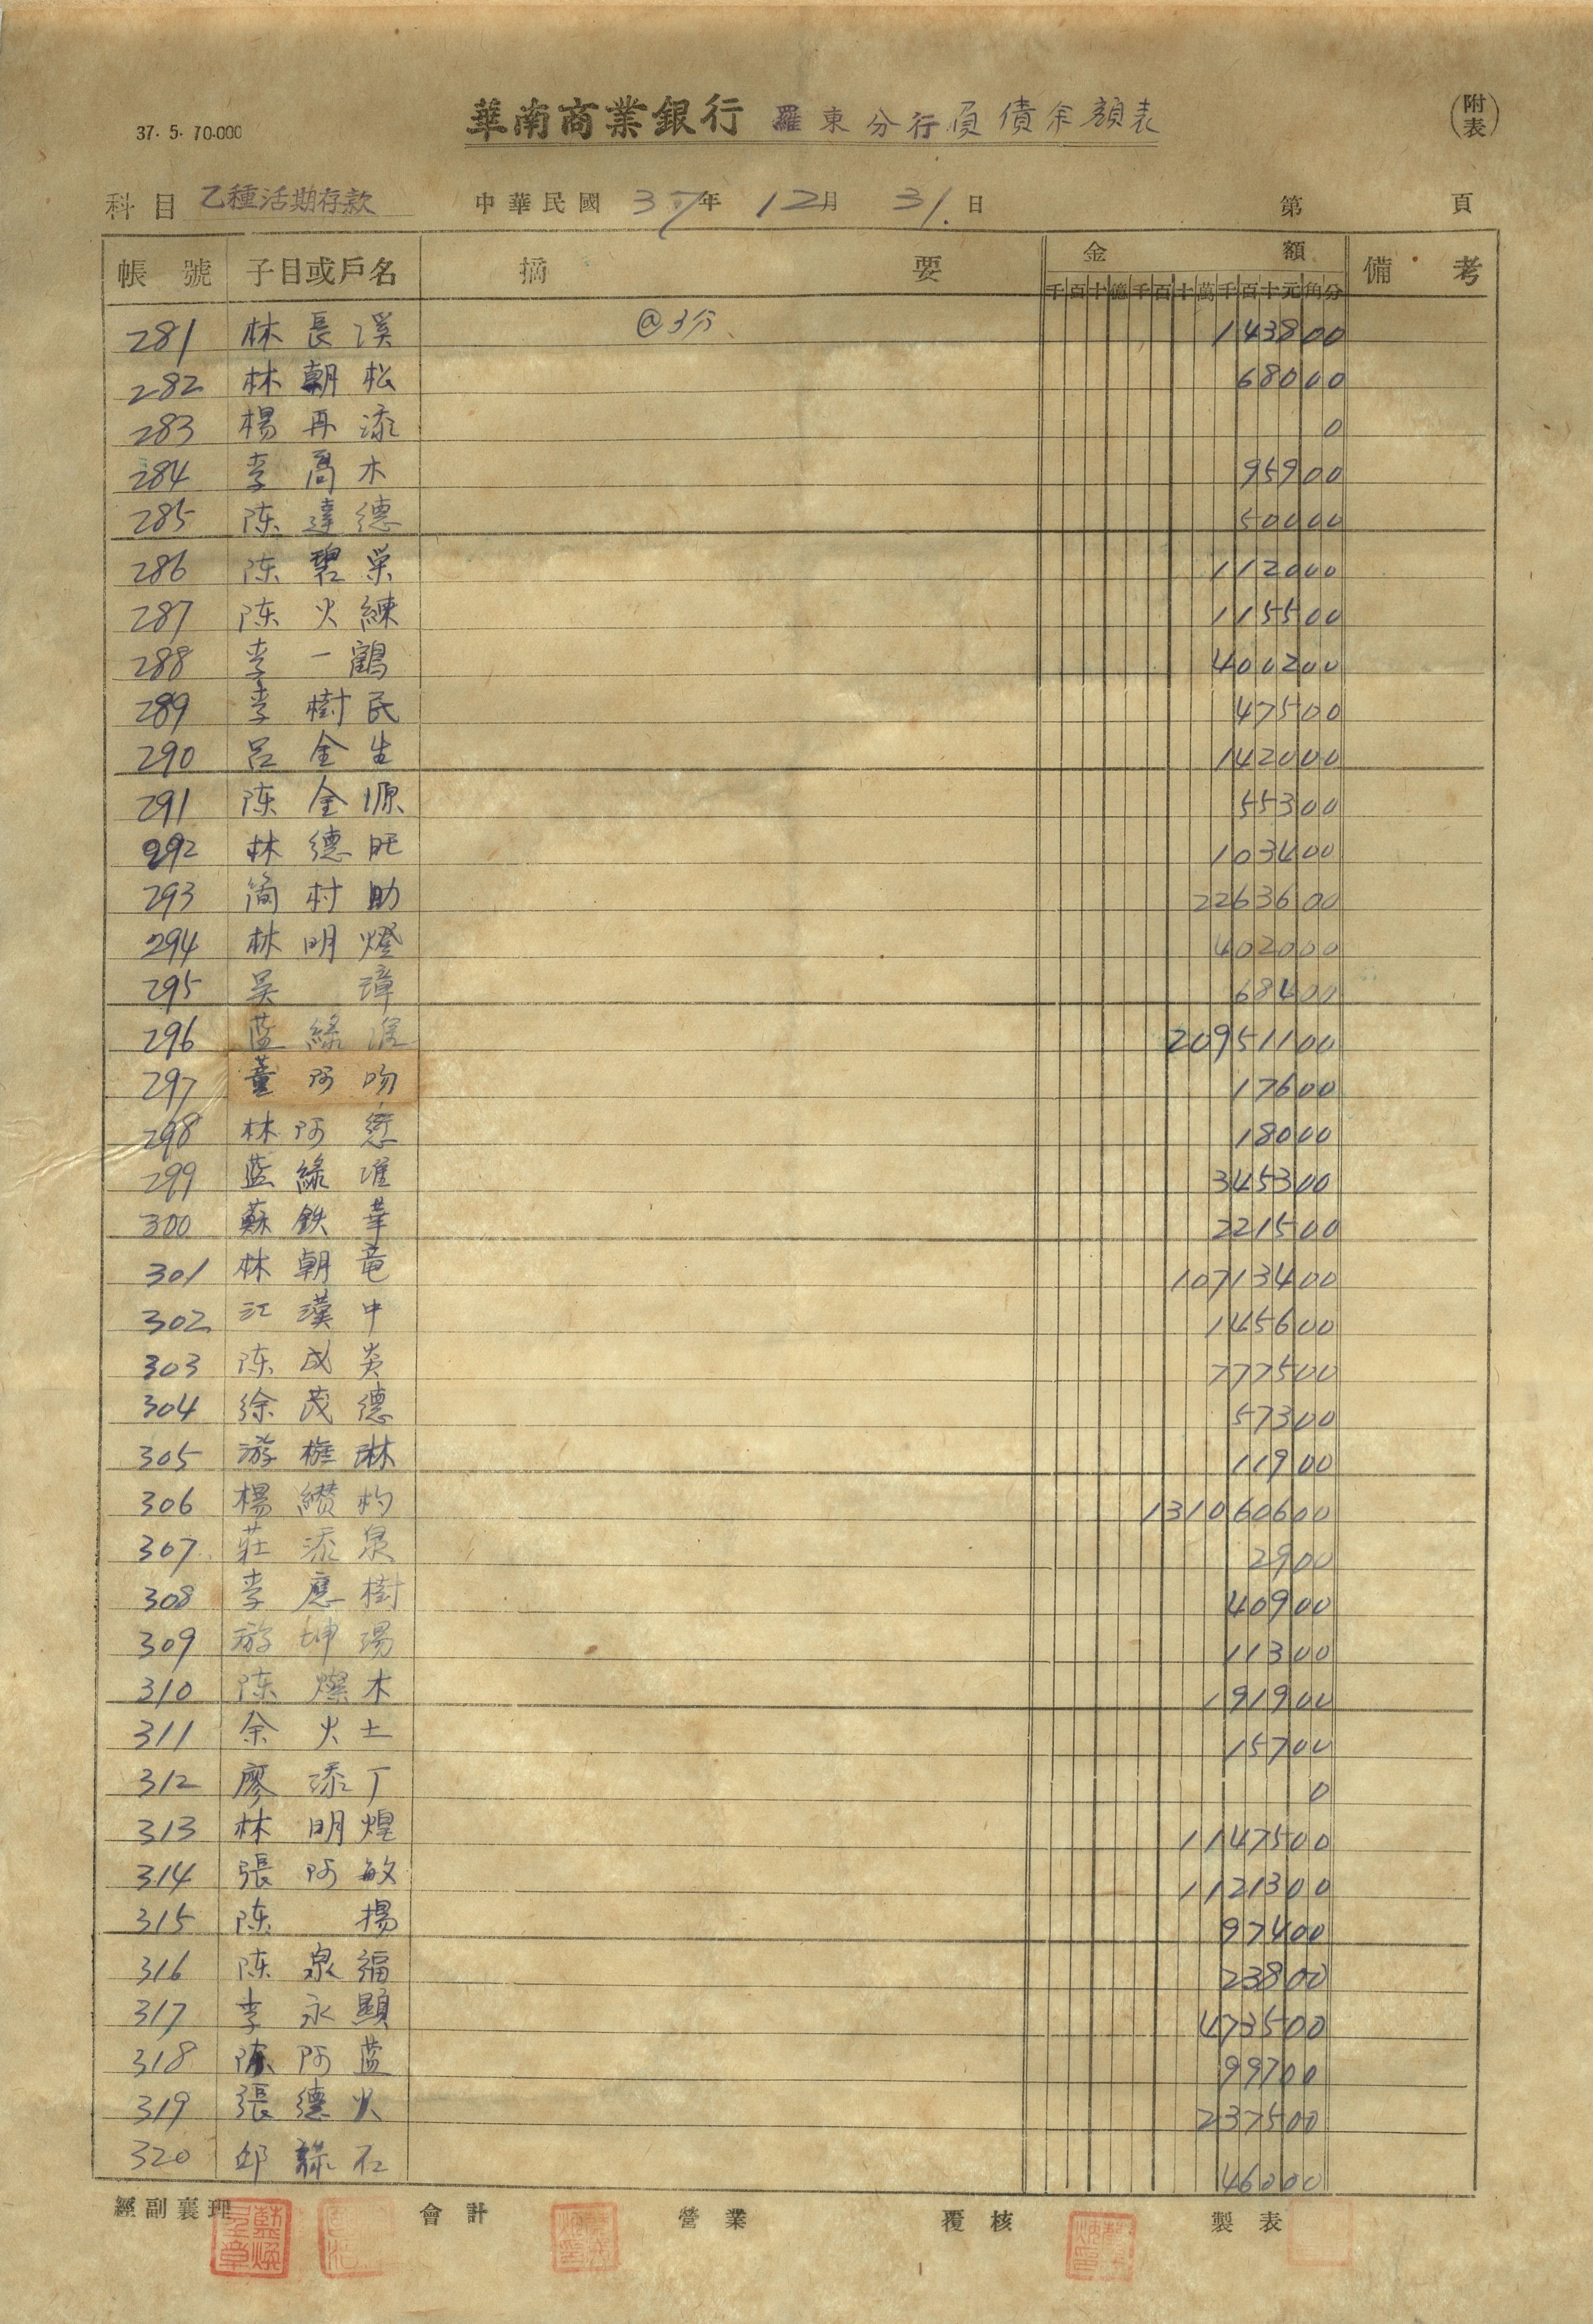 37. 5. 70.000
華南商業銀行 羅東分行負債余額表
(附表)
科目 乙種活期存款 中華民國 37年 12月 31日 第 頁
帳號 子目或戶名 摘要 金額 備考
千百十億千百十萬千百十元角分
281 林長溪 @3分 143800
282 林朝松 68000
283 楊再添 0
284 李喬木 95900
285 陈達德 50000
286 陈碧栄 112000
287 陈火練 115500
288 李一鶴 400200
289 李樹民 47500
290 呂金生 142000
291 陈金塬 55300
292 林德旺 103400
293 簡村助 2263600
294 林明燈 402000
295 吴璋 68400
296 蓝綠 20951100
297 董阿吻 17600
298 林阿 18000
299 蓝綠 345300
300 蘇鉄華 221500
301 林朝竜 10713400
302 江漢中 145600
303 陈成炎 777500
304 徐茂德 57300
305 游琳 11900
306 楊纉杓 131060600
307 莊添泉 2900
308 李應樹 40900
309 游坤 11300
310 陈燦木 191900
311 余火土 15700
312 廖添丁 0
313 林明煌 1147500
314 張阿敏 1121300
315 陈揚 97400
316 陈泉福 23800
317 李永顯 473500
318 陈阿蓝 99700
319 張德火 237500
320 邱石 46000
經副襄理 會計 營業 覆核 製表